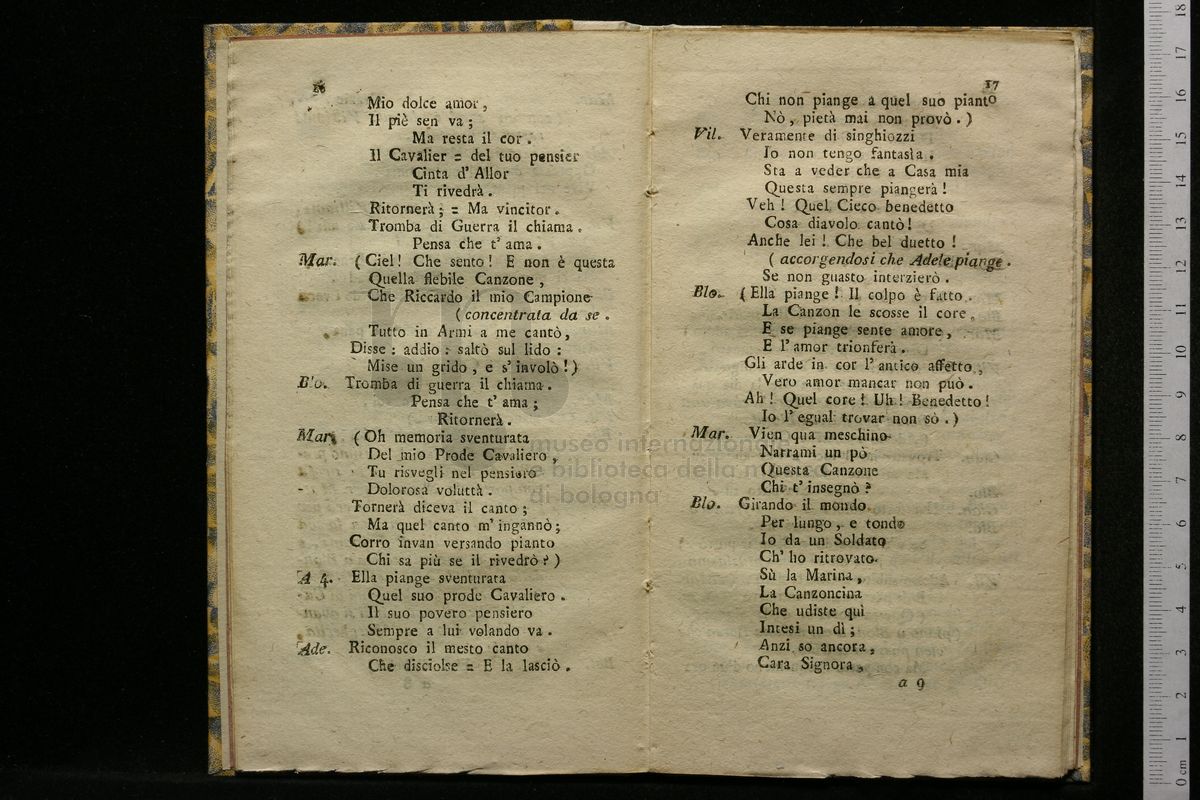 16
Mio dolce amor,
Il piè sen va;
Ma resta il cor.
Il Cavalier = del tuo pensier
Cinta d' Allor
Ti rivedrà.
Ritornerà; = Ma vincitor.
Tromba di Guerra il chiama.
Pensa che t' ama.
Mar. (Ciel! Che sento! E non è questa
Quella flebile Canzone,
Che Riccardo il mio Campione
(concentrata da se.
Tutto in Armi a me cantò,
Disse: addio: saltò sul lido:
Mise un grido, e s' involò!)
Blo. Tromba di guerra il chiama.
Pensa che t' ama;
Ritornerà.
Mar. (Oh memoria sventurata
Del mio Prode Cavaliero,
Tu risvegli nel pensiero
Dolorosa voluttà.
Tornerà diceva il canto;
Ma quel canto m' ingannò;
Corro invan versando pianto
Chi sa più se il rivedrò?)
A 4. Ella piange sventurata
Quel suo prode Cavaliero.
Il suo povero pensiero
Sempre a lui volando va.
Ade. Riconosco il mesto canto
Che disciolse = E la lasciò.
17
Chi non piange a quel suo pianto
Nò, pietà mai non provò.)
Vil. Veramente di singhiozzi
Io non tengo fantasìa.
Sta a veder che a Casa mia
Questa sempre piangerà!
Veh! Quel Cieco benedetto
Cosa diavolo cantò!
Anche lei! Che bel duetto!
(accorgendosi che Adele piange.
Se non guasto interzierò.
Blo. (Ella piange! Il colpo è fatto.
La Canzon le scosse il core.
E se piange sente amore,
E l' amor trionferà.
Gli arde in cor l' antico affetto,
Vero amor mancar non può.
Ah! Quel core! Uh! Benedetto!
Io l' egual trovar non sò.)
Mar. Vien qua meschino
Narrami un pò
Questa Canzone
Chi t' insegnò?
Blo. Girando il mondo
Per lungo, e tondo
Io da un Soldato
Ch' ho ritrovato
Sù la Marina,
La Canzoncina
Che udiste quì
Intesi un dì;
Anzi so ancora,
Cara Signora,
a 9
museo internazionale
e biblioteca della m
di bologna
0 cm 1 2 3 4 5 6 7 8 9 10 11 12 13 14 15 16 17 18